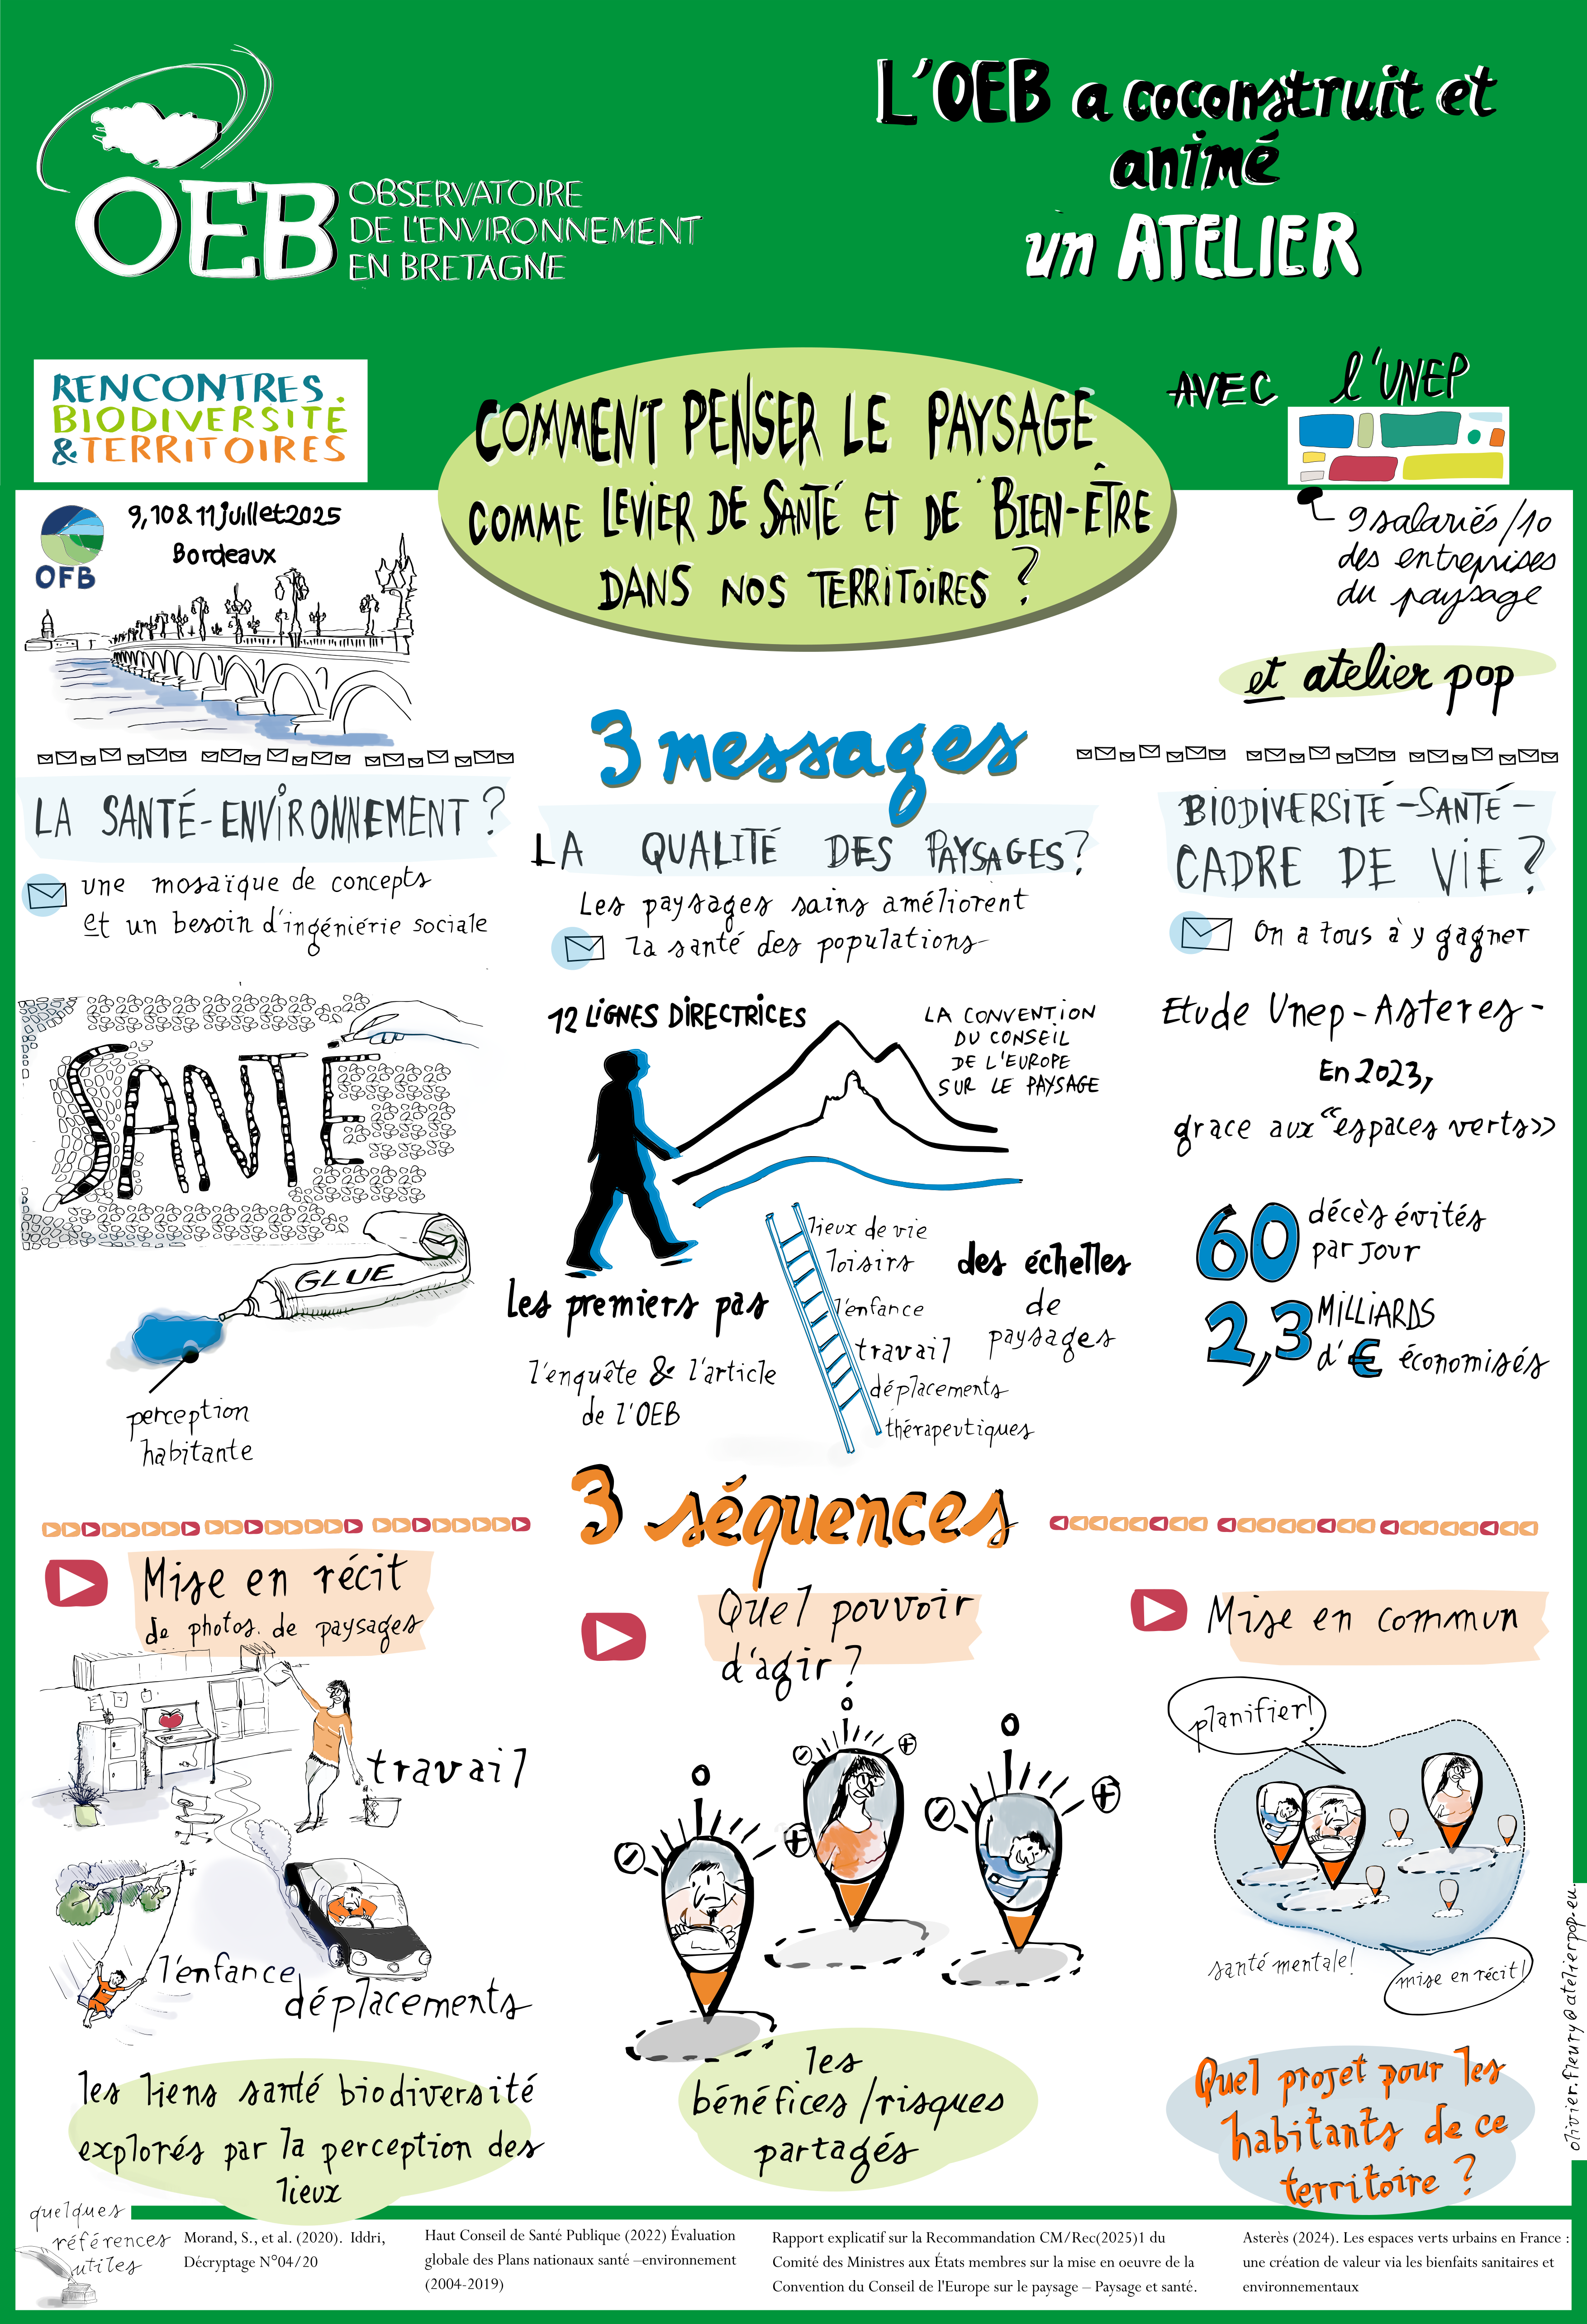 OEB
OBSERVATOIRE
DE L'ENVIRONNEMENT
EN BRETAGNE
L'OEB a coconstruit et
animé
un ATELIER
RENCONTRES
BIODIVERSITÉ
&TERRITOIRES
COMMENT PENSER LE PAYSAGE
COMME LEVIER DE SANTÉ ET DE BIEN-ÊTRE
DANS NOS TERRITOIRES ?
AVEC l'UNEP
OFB
9, 10 & 11 juillet 2025
Bordeaux
9 salariés/10
des entreprises
du paysage
et atelier pop
3 messages
LA SANTÉ-ENVIRONNEMENT ?
une mosaïque de concepts
et un besoin d'ingéniérie sociale
SANTÉ
GLUE
perception
habitante
LA QUALITÉ DES PAYSAGES?
Les paysages sains améliorent
la santé des populations
12 LIGNES DIRECTRICES
LA CONVENTION
DU CONSEIL
DE L'EUROPE
SUR LE PAYSAGE
Les premiers pas
l'enquête & l'article
de l'OEB
lieux de vie
loisirs
l'enfance
travail
déplacements
thérapeutiques
des échelles
de
paysages
BIODIVERSITÉ-SANTÉ-
CADRE DE VIE ?
On a tous à y gagner
Etude Unep-Asteres-
En 2023,
grace aux “espaces verts»
60 décès évités
par jour
2,3 MILLIARDS
d'€ économisés
3 séquences
Mise en récit
de photos. de paysages
travail
l'enfance
déplacements
les liens santé biodiversité
explorés par la perception des
lieux
Quel pouvoir
d'agir ?
les
bénéfices/risques
partagés
Mise en commun
planifier!
santé mentale!
mise en récit!
Quel projet pour les
habitants de ce
territoire ?
olivier.fleury@atelierpop.eu
quelques
références
utiles
Morand, S., et al. (2020). Iddri,
Décryptage N°04/20
Haut Conseil de Santé Publique (2022) Évaluation
globale des Plans nationaux santé –environnement
(2004-2019)
Rapport explicatif sur la Recommandation CM/Rec(2025)1 du
Comité des Ministres aux États membres sur la mise en oeuvre de la
Convention du Conseil de l'Europe sur le paysage – Paysage et santé.
Asterès (2024). Les espaces verts urbains en France :
une création de valeur via les bienfaits sanitaires et
environnementaux